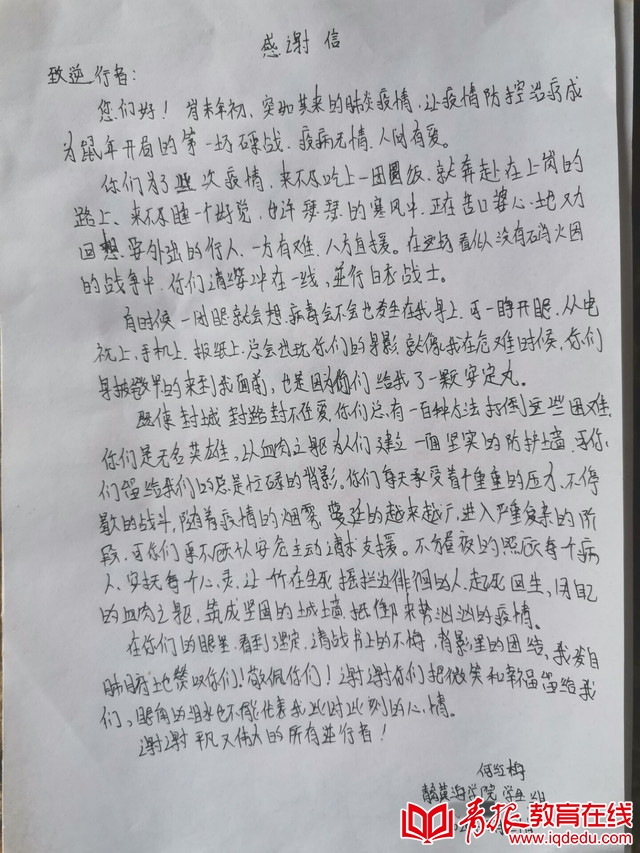 感谢信
致逆行者：
您们好！岁末年初，突如其来的肺炎疫情，让疫情防控治疗成
为鼠年开局的第一场硬战，疫病无情，人间有爱。
你们为了此次疫情，来不及吃上一团圆饭，就奔赴在上岗的
路上、来不及睡一个好觉，在许瑟瑟的寒风中，正在苦口婆心地
回想要外出的行人，一方有难，八方支援。在这场看似没有硝火因
的战争中，你们请缨冲在一线，逆行白衣战士。
有时候一闭眼就会想，病毒会不会也发生在我身上，可一睁开眼，从电
视上，手机上，报纸上，总会出现你们的身影，就像我在危难时候，你们
身披盔甲的来到我面前，也是因为你们给我了一颗安定丸。
既使封城封路封不住爱，你们总有一百种方法打倒这些困难，
你们是无名英雄，以血肉之躯为人们建立一面坚实的防护墙，可你
们留给我们的总是忙碌的背影。你们每天承受着千重重的压力，不停
歇的战斗，随着疫情的烟雾，蔓延的越来越广，进入严重复杂的阶
段，可你们再不顾以安危主动请求支援。不分昼夜的照顾每个病
人，安抚每个心灵，让一个在生死摇拦边徘徊的人起死回生，用自己
的血肉之躯，筑成坚固的城土墙，抵御来势汹汹的疫情。
在你们的眼里，看到了坚定，请战书上的不悔，背影里的团结，我发自
肺腑地赞叹你们！敬佩你们！谢谢你们把微笑和幸福留给我
们，眼角的泪水也不能代表我此时此刻的心情。
谢谢平凡又伟大的所有逆行者！
何红梅
青岛黄海学院 学生
青报教育在线
www.iqdedu.com